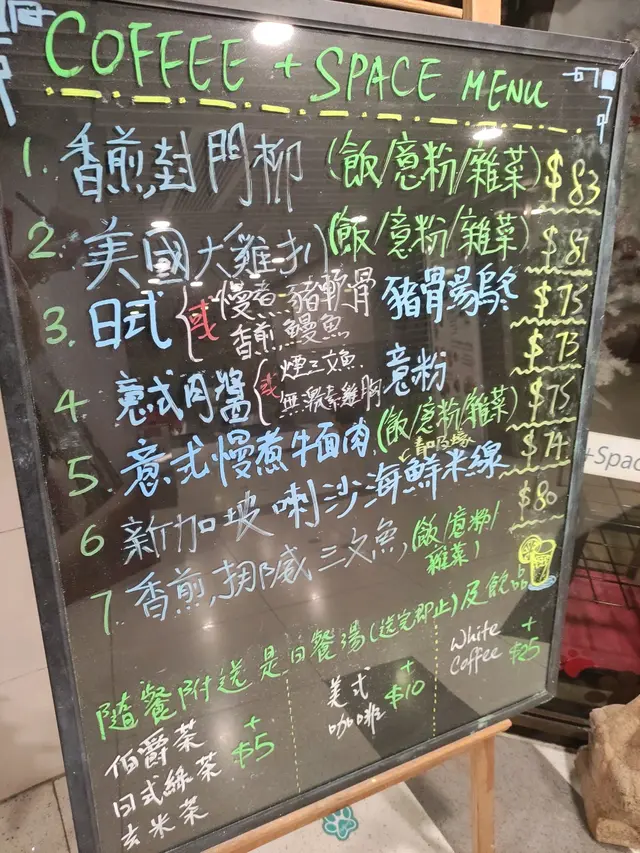 COFFEE + SPACE MENU
1. 香煎封門柳 (飯/意粉/雜菜) $83
2. 美國大雞扒 (飯/意粉/雜菜) $81
3. 日式 慢煮豬軟骨 或 香煎鰻魚 豬骨湯烏冬 $75
$73
4 意式肉醬 或 煙三文魚 無激素雞胸 意粉
5. 意式慢煮牛面肉 (飯/意粉/雜菜) $75
6 新加坡喇沙海鮮米線 $74
7. 香煎挪威三文魚, (飯/意粉/雜菜) $80
隨餐附送是日餐湯(送完即止)及飲
伯爵茶
日式綠茶
玄米茶
+
$5
美式
咖啡
+
$10
White
Coffee
+
$25
+Spac